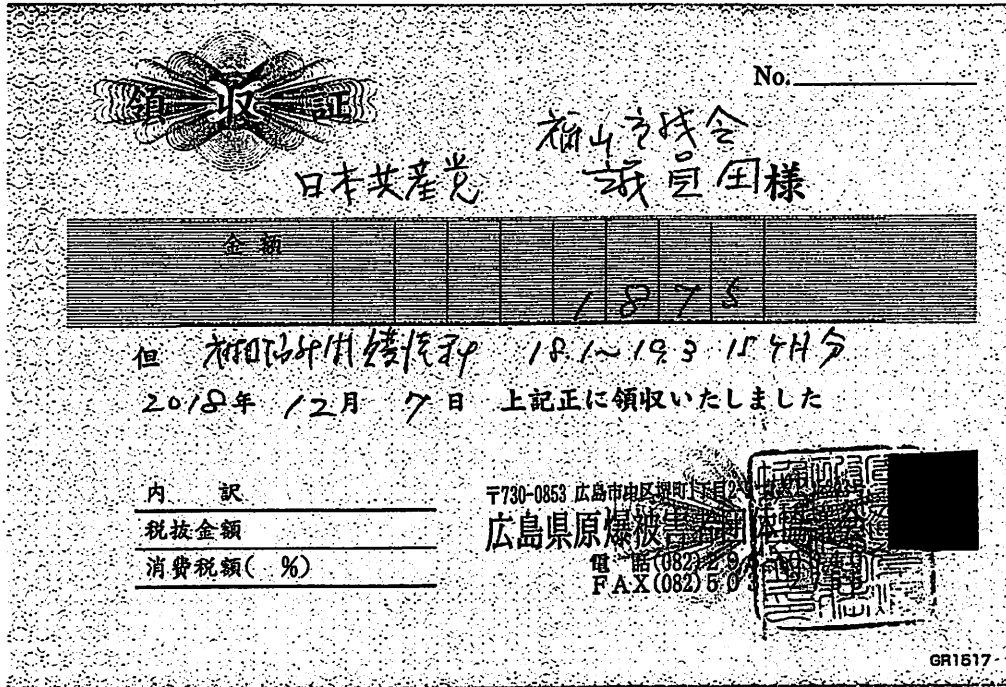 No.
領収証
福山市議会
日本共産党 議員団様
金額 1875
但 18.1~19.3 15ヶ月分
2018年 12月 7日 上記正に領収いたしました
内訳
税抜金額
消費税額( %)
〒730-0853 広島市中区堺町1丁目2
広島県原爆被害者団体協議会
電話(082)2
FAX(082)50
GR1517